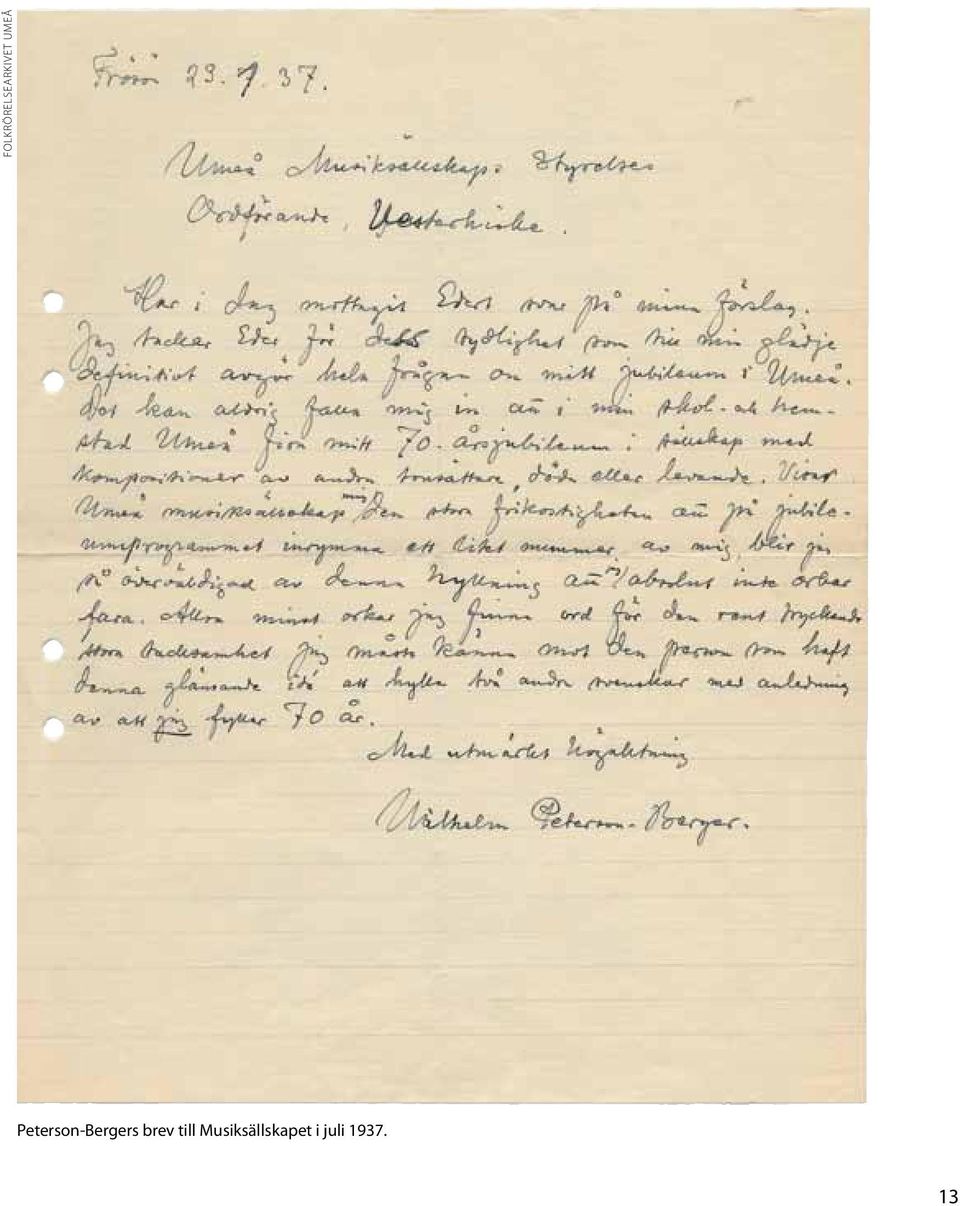 FOLKRÖRELSEARKIVET UMEÅ
Frösön 29.7.37.
Umeå Musiksällskaps Styrelses
Ordförande, Vesterhicke.
Har i dag mottagit Edert svar på mina förslag.
Jag tackar Eder för dess tydlighet som till min glädje
definitivt avgör hela frågan om mitt jubileum i Umeå.
Det kan aldrig falla mig in att i min skol- och hem-
stad Umeå fira mitt 70-årsjubileum i sällskap med
kompositioner av andra tonsättare, döda eller levande. Visar
Umeå musiksällskap mig den stora frikostigheten att på jubile-
umsprogrammet inrymma ett litet nummer av mig, blir jag
så överväldigad av denna hyllning att absolut inte orkar
fara. Allra minst orkar jag finna ord för den rent tryckande
stora tacksamhet jag måste känna mot den person som haft
denna glänsande idé att hylla två andra svenskar med anledning
av att jag fyller 70 år.
Med utmärkt högaktning
Wilhelm Peterson-Berger.
Peterson-Bergers brev till Musiksällskapet i juli 1937.
13